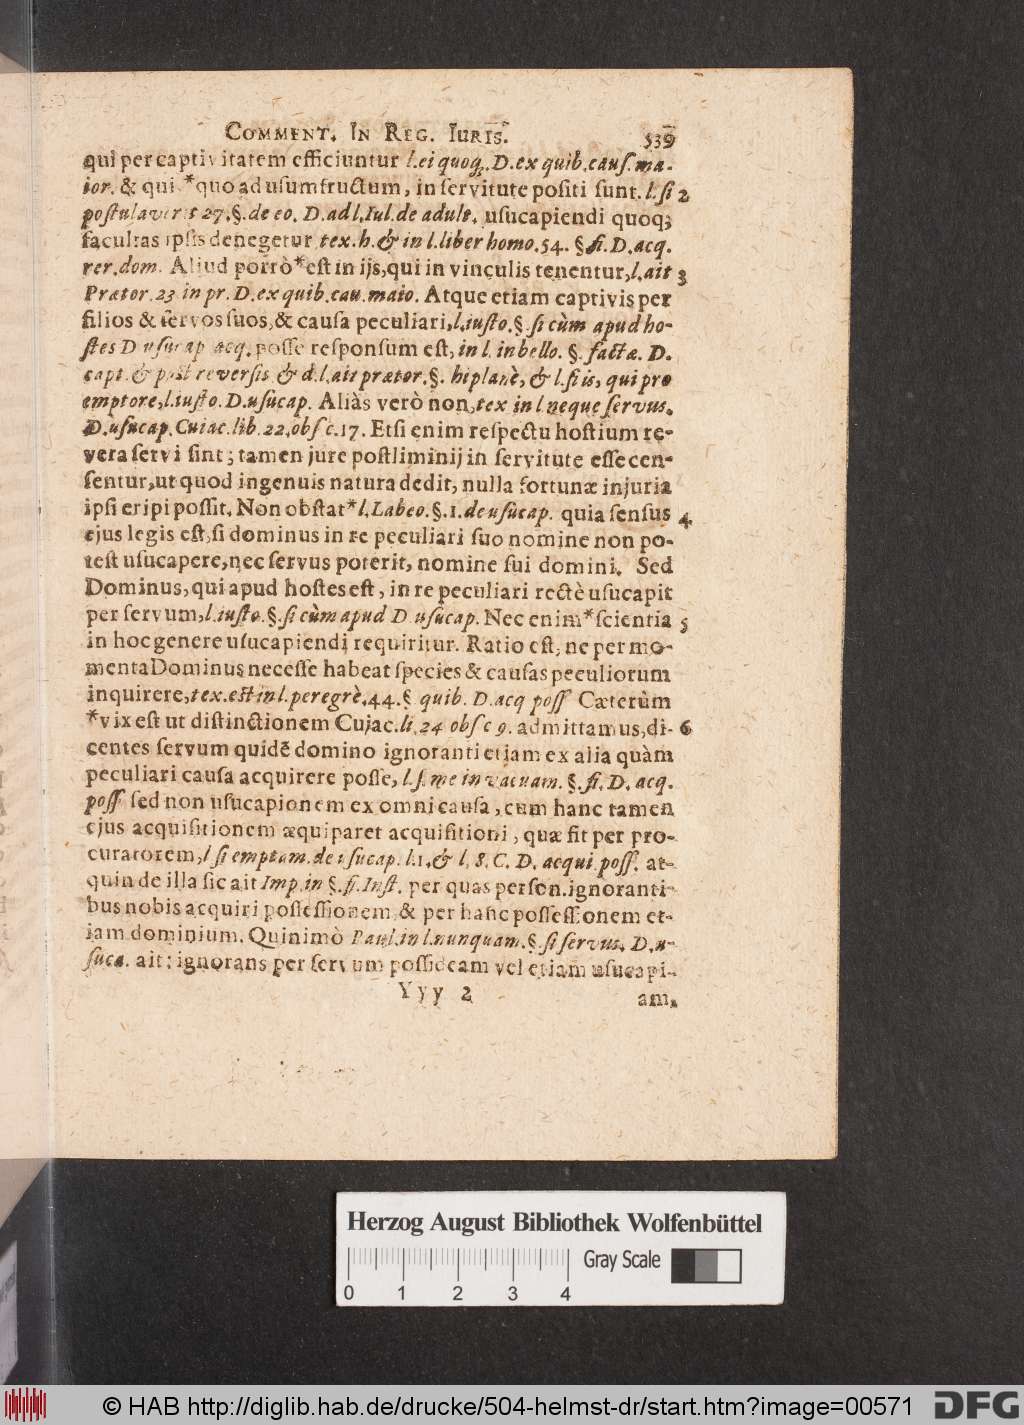 COMMENT. IN REG. IURIS. 539
qui per captivitatem efficiuntur l. ei quoq;. D. ex quib. caus. ma-
ior. & qui *quo ad usumfructum, in servitute positi sunt. l. si 2
postulaverit 27. §. de eo. D. ad l. Iul. de adult. usucapiendi quoq;
facultas ipsis denegetur tex. h. & in l. liber homo. 54. § fi. D. acq.
rer. dom. Aliud porrò *est in ijs, qui in vinculis tenentur, l. ait 3
Prætor. 23 in pr. D. ex quib. cau. maio. Atque etiam captivis per
filios & servos suos, & causa peculiari, l. iusto. §. si cùm apud ho-
stes D usucap acq. posse responsum est, in l. in bello. §. factæ. D.
capt. & post reversis & d. l. ait prætor. §. hi planè, & l. si is, qui pro
emptore, l. iusto. D. usucap. Aliàs verò non, tex in l neque servus.
D. usucap. Cuiac. lib. 22. obs c. 17. Etsi enim respectu hostium re-
vera servi sint; tamen jure postliminij in servitute esse cen-
sentur, ut quod ingenuis natura dedit, nulla fortunæ injuria
ipsi eripi possit. Non obstat *l. Labeo. §. 1. de usucap. quia sensus 4
ejus legis est, si dominus in re peculiari suo nomine non po-
test usucapere, nec servus poterit, nomine sui domini. Sed
Dominus, qui apud hostes est, in re peculiari rectè usucapit
per servum, l. iusto. §. si cùm apud D usucap. Nec enim *scientia 5
in hoc genere usucapiendi requiritur. Ratio est, ne per mo-
menta Dominus necesse habeat species & causas peculiorum
inquirere, tex. est in l. peregrè. 44. § quib. D. acq poss Cæterùm
*vix est ut distinctionem Cujac. li. 24 obs c 9. admittamus, di- 6
centes servum quidē domino ignoranti etiam ex alia quàm
peculiari causa acquirere posse, l. s. me in vacuam. §. fi. D. acq.
poss sed non usucapionem ex omni causa, cum hanc tamen
ejus acquisitionem æquiparet acquisitioni, quæ fit per pro-
curatorem, l si emptam. de usucap. l. 1. & l. 8. C. D. acqui. poss. at-
qui n de illa sic ait Imp. in §. fi. Inst. per quas person. ignoranti-
bus nobis acquiri possessionem, & per hanc possessionem et-
iam dominium. Quinimò Paul. in l. nunquam. §. si servus. D. u-
suca. ait: ignorans per servum possideam vel etiam usucapi-
Yyy 2 am.
Herzog August Bibliothek Wolfenbüttel
Gray Scale
0 1 2 3 4
© HAB http://diglib.hab.de/drucke/504-helmst-dr/start.htm?image=00571
DFG